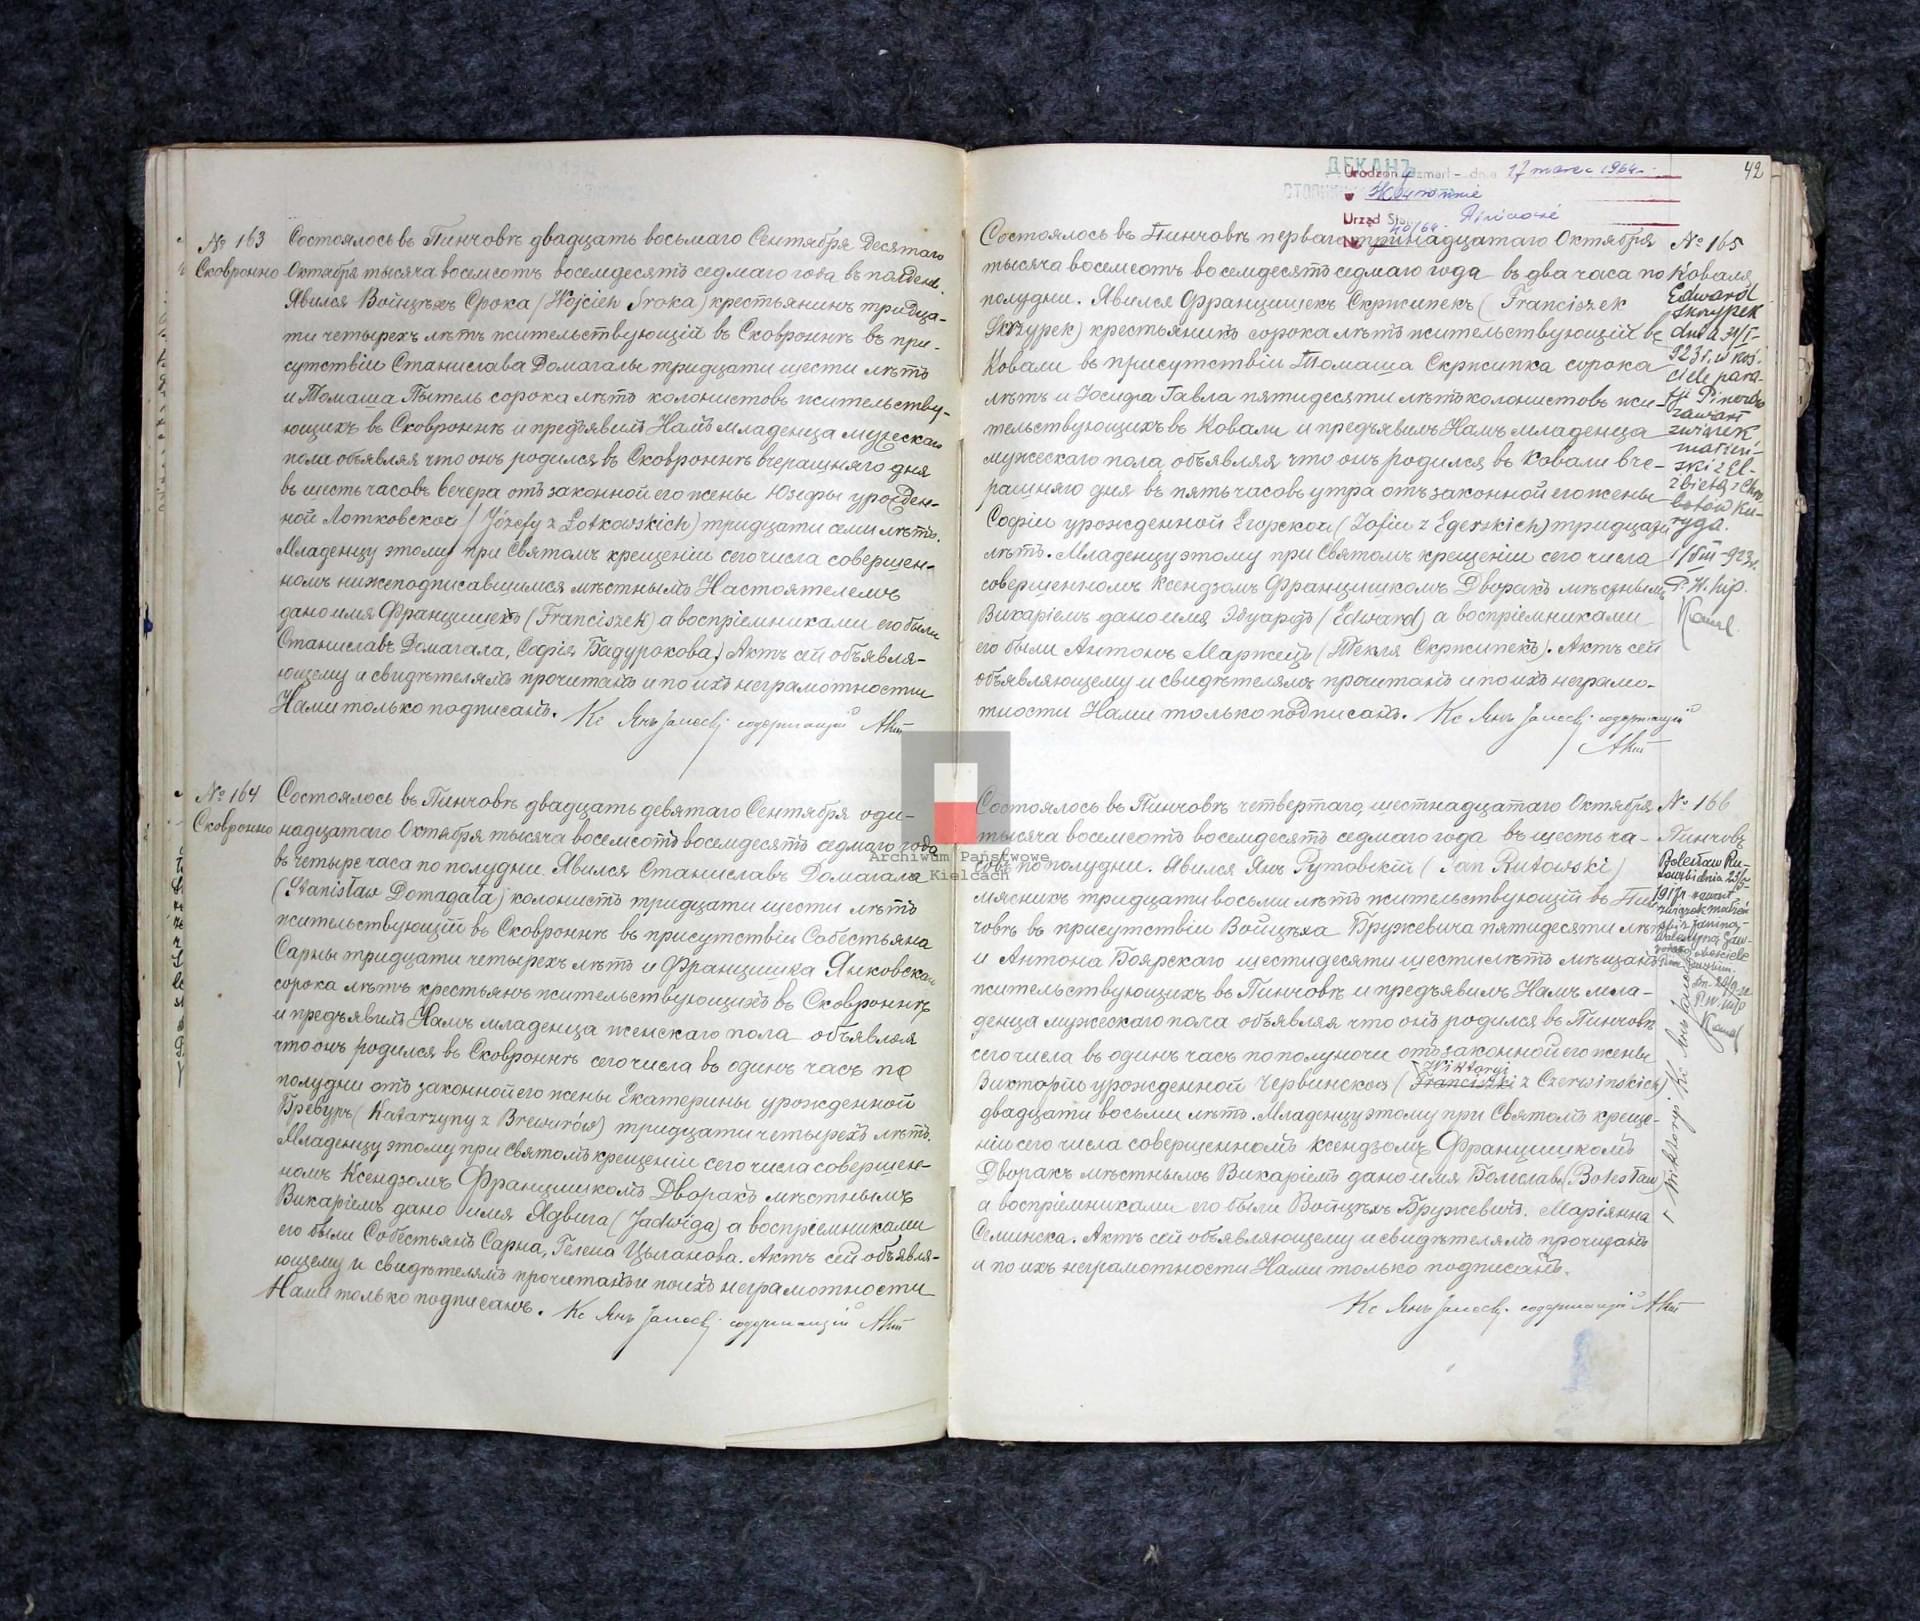 № 163
Сковронно
Состоялось въ Пинчовѣ двадцать восьмаго Сентября десятаго
Октября тысяча восемсотъ восемдесятъ седмаго года въ полдень.
Явился Войцѣхъ Срока (Wojcieh Sroka) крестьянинъ тридца-
ти четырехъ лѣтъ жительствующій въ Сковроннѣ въ при-
сутствіи Станислава Домагалы тридцати шести лѣтъ
и Томаша Пытель сорока лѣтъ колонистовъ жительству-
ющихъ въ Сковроннѣ и предъявилъ Намъ младенца мужескаго
пола объявляя что онъ родился въ Сковроннѣ вчерашняго дня
въ шесть часовъ вечера отъ законной его жены Юзефы урожден-
ной Лотковской (Józefy z Łotkowskich) тридцати лѣтъ.
Младенцу этому при Святомъ крещеніи сего числа совершен-
номъ нижеподписавшимся мѣстнымъ Настоятелемъ
дано имя Францишекъ (Franciszek) а воспріемниками его были
Станиславъ Домагала, Софія Бадурокова. Актъ сей объявля-
ющему и свидѣтелямъ прочитанъ и по ихъ неграмотности
Нами только подписанъ. Кс Янъ содержащій Актъ
№ 164
Сковронно
Состоялось въ Пинчовѣ двадцать девятаго Сентября оди-
надцатаго Октября тысяча восемсотъ восемдесятъ седмаго года
въ четыре часа по полудни. Явился Станиславъ Домагала
(Stanisław Domagała) колонистъ тридцати шести лѣтъ
жительствующій въ Сковроннѣ въ присутствіи Собестьяна
Сарны тридцати четырехъ лѣтъ и Францишка Янковскаго
сорока лѣтъ крестьянъ жительствующихъ въ Сковроннѣ
и предъявилъ Намъ младенца женскаго пола объявляя
что онъ родился въ Сковроннѣ сего числа въ одинъ часъ по
полудни отъ законной его жены Екатерины урожденной
Бревуръ (Katarzyny z Brewurów) тридцати четырехъ лѣтъ.
Младенцу этому при Святомъ крещеніи сего числа совершен-
номъ Ксендзомъ Францишкомъ Дворакъ мѣстнымъ
Викаріемъ дано имя Ядвига (Jadwiga) а воспріемниками
его были Собестьянъ Сарна, Гелена Цыганова. Актъ сей объявля-
ющему и свидѣтелямъ прочитанъ и по ихъ неграмотности
Нами только подписанъ. Кс Янъ содержащій Актъ
42
ДЕКАНЪ
zmarł - dnia 17 marca 1964 r.
Skowronnie
Urząd Pińczowie
40/64
№ 165
Коваля
Состоялось въ Пинчовѣ перваго тринадцатаго Октября
тысяча восемсотъ восемдесятъ седмаго года въ два часа по
полудни. Явился Францишекъ Скржипекъ (Franciszek
Skrzypek) крестьянинъ сорока лѣтъ жительствующій въ
Ковали въ присутствіи Томаша Скржипка сорока
лѣтъ и Іосифа Гавла пятидесяти лѣтъ колонистовъ жи-
тельствующихъ въ Ковали и предъявилъ Намъ младенца
мужескаго пола объявляя что онъ родился въ Ковали вче-
рашняго дня въ пять часовъ утра отъ законной его жены
Софіи урожденной Егорской (Zofiи z Egerskich) тридцати
лѣтъ. Младенцу этому при Святомъ крещеніи сего числа
совершенномъ Ксендзомъ Францишкомъ Дворакъ мѣстнымъ
Викаріемъ дано имя Эдуардъ (Edward) а воспріемниками
его были Антонъ Маржецъ (Текля Скржипекъ). Актъ сей
объявляющему и свидѣтелямъ прочитанъ и по ихъ неграмо-
тности Нами только подписанъ. Кс Янъ содержащій
Актъ
Edward
Skrzypek
dnia 31/I-
923 r. w koś-
ciele para-
fji Pinczów
zawarł
związek
małżeń-
ski z El-
żbietą z Chro
botów Ku-
ryga.
P. W. hip.
№ 166
Пинчовъ
Состоялось въ Пинчовѣ четвертаго, шестнадцатаго Октября
тысяча восемсотъ восемдесятъ седмаго года въ шесть ча-
совъ по полудни. Явился Янъ Рутовскій (Jan Rutowski)
мясникъ тридцати восьми лѣтъ жительствующій въ Пин
човѣ въ присутствіи Войцѣха Бружевича пятидесяти лѣтъ
и Антона Боярскаго шестидесяти шести лѣтъ мѣщанъ
жительствующихъ въ Пинчовѣ и предъявилъ Намъ мла-
денца мужескаго пола объявляя что онъ родился въ Пинчовѣ
сего числа въ одинъ часъ по полуночи отъ законной его жены
Wiktoryi
Викторіи урожденной Червинской (Franciszki z Czerwinskich)
двадцати восьми лѣтъ. Младенцу этому при Святомъ креще-
ніи сего числа совершенномъ Ксендзомъ Францишкомъ
Дворакъ мѣстнымъ Викаріемъ дано имя Болеславъ (Bolesław)
а воспріемниками его были Войцѣхъ Бружевичъ. Маріянна
Семинска. Актъ сей объявляющему и свидѣтелямъ прочитанъ
и по ихъ неграмотности Нами только подписанъ.
Кс Янъ содержащій Актъ
Bolesław Ru-
towski dnia 23/
1917 r. zawarł
związek małżeń
ski z Janiną
Walentyną Gaw-
w kościele
P. W. hip
Wiktoryi Кс Янъ
Archiwum Państwowe
w Kielcach